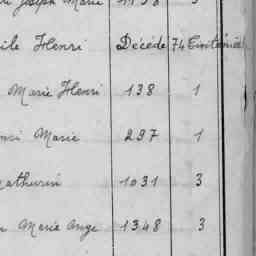 Joseph Marie 1158 3
ile Henri Décédé 74
Marie Henri 138 1
nri Marie 297 1
athurin 1031 3
Marie Ange 1348 3